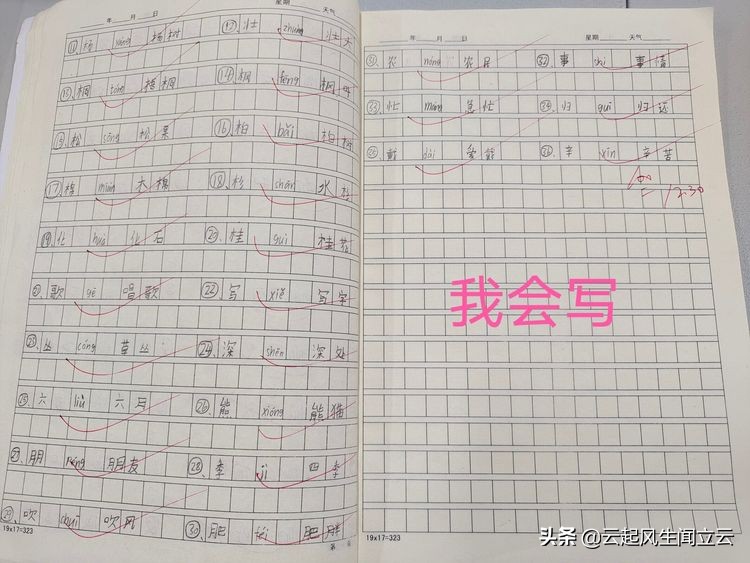 年 月 日 星期 天气
⑪杨 yáng 杨树 ⑫壮 zhuàng 壮大
⑬桐 tóng 梧桐 ⑭枫 fēng 枫叶
⑮松 sōng 松果 ⑯柏 bǎi 柏树
⑰棉 mián 木棉 ⑱杉 shān 水杉
⑲化 huà 化石 ⑳桂 guì 桂花
㉑歌 gē 唱歌 ㉒写 xiě 写字
㉓丛 cóng 草丛 ㉔深 shēn 深处
㉕六 liù 六月 ㉖熊 xióng 熊猫
㉗朋 péng 朋友 ㉘季 jì 四季
㉙吹 chuī 吹风 ㉚肥 féi 肥胖
19x17=323
年 月 日 星期 天气
㉛农 nóng 农民 ㉜事 shì 事情
㉝忙 máng 急忙 ㉞归 guī 归还
㉟戴 dài 爱戴 ㊱辛 xīn 辛苦
100
12.30
我会写
19x17=323
头条 @云起风生闻立云